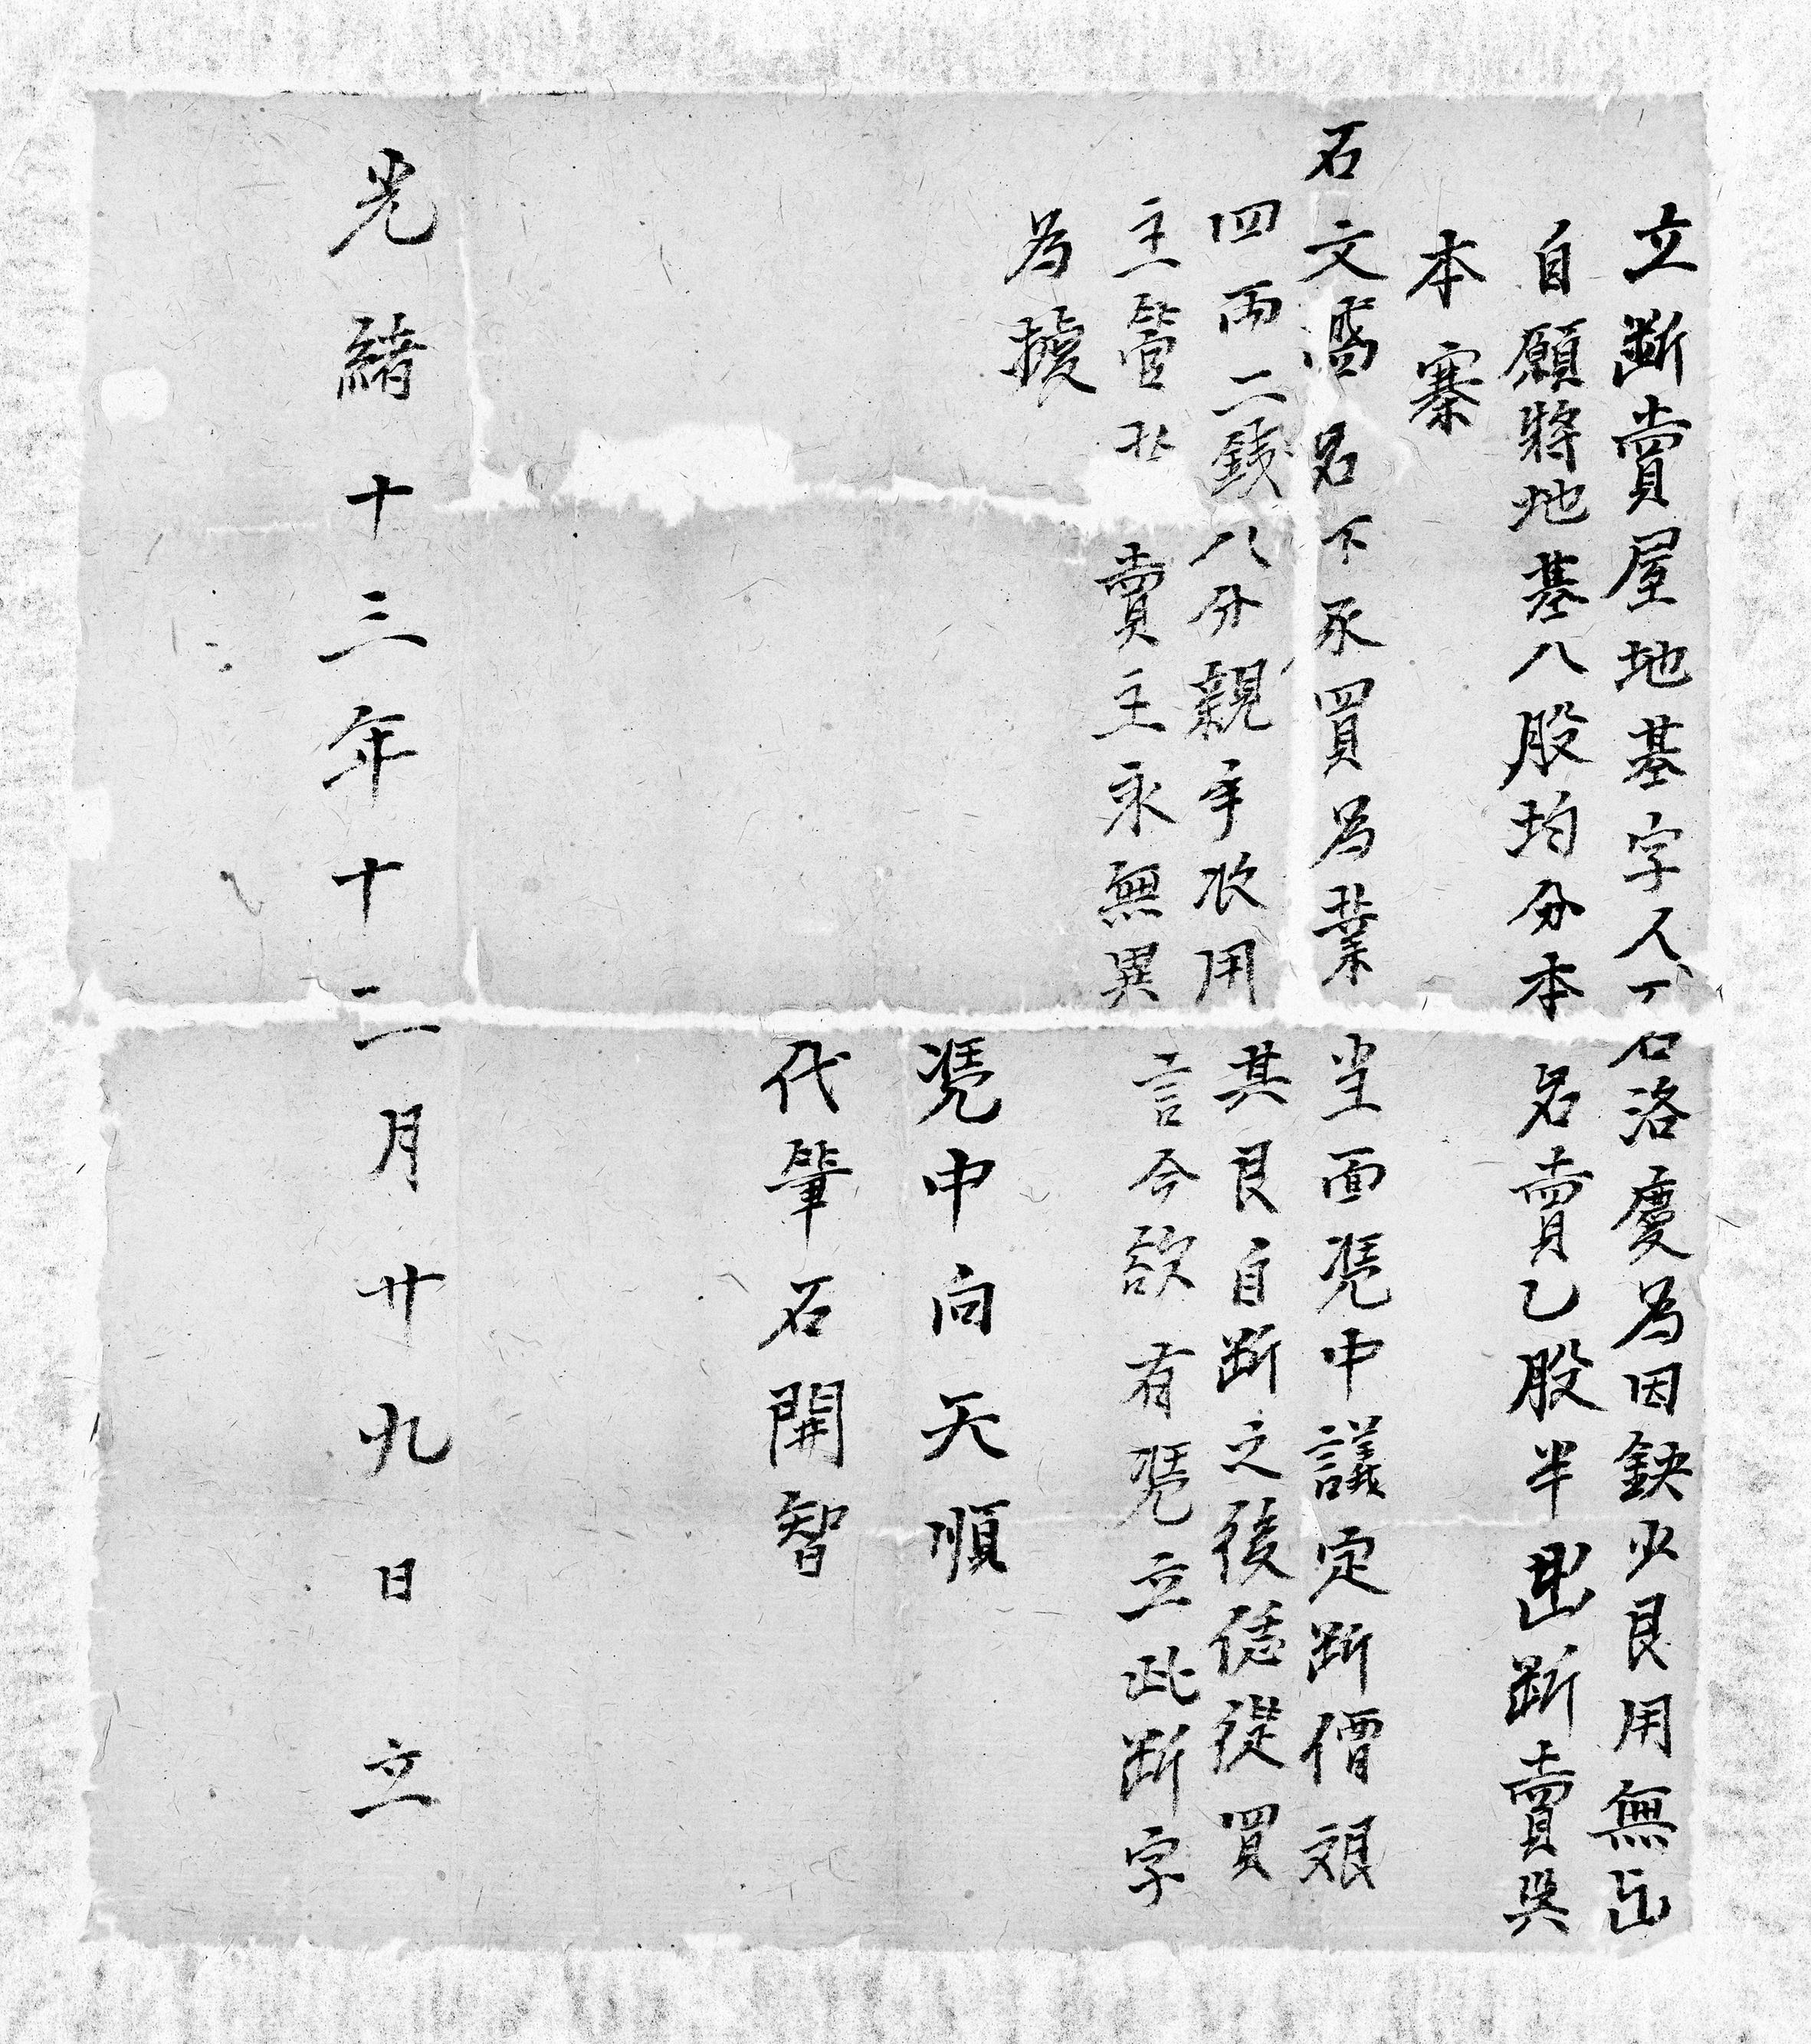 立斷賣屋地基字人丁石洛慶為因缺少艮用無出
自願將地基八股均分本名賣乙股半出斷賣與
本寨
石文 名下承買為業当面凴中議定斷價艮
四両二錢八分親手收用其艮自斷之後任從買
主管 賣主永無異言今欲有凴立此斷字
為據
凴中向天順
代筆石開智
光緒十三年十二月廿九日立